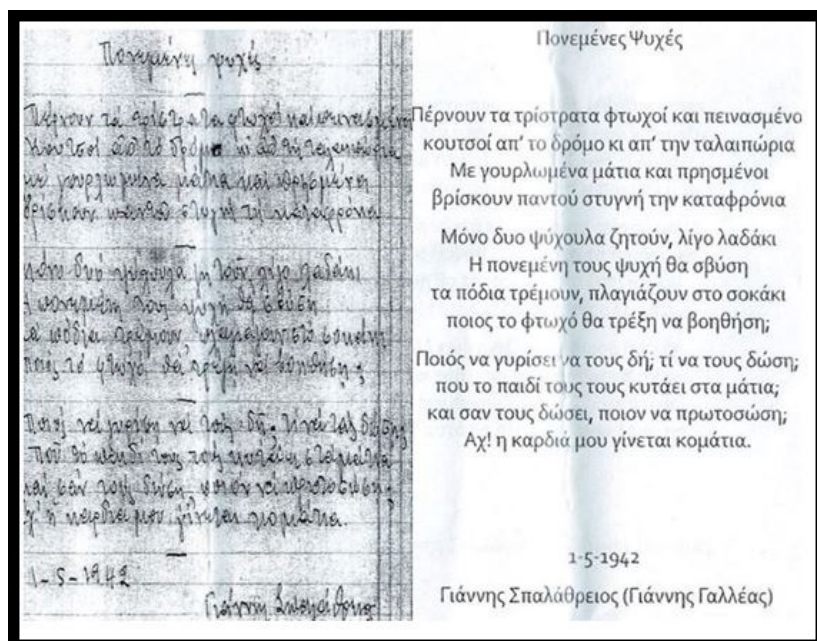 Πονεμένη ψυχές
Πέρνουν τα τρίστρατα φτωχοί και πεινασμένοι
Κουτσοί απ το δρόμο κι απ τη ταλαιπωρία
με γουρλωμενα μάτια και πρισμένοι
βρίσκουν παντού στυγνή τη καταφρόνια
Μόνο δυό ψύχουλα ζητούν λίγο λαδάκι
η πονεμένη τους ψυχή θα σβύση
τα πόδια τρέμουν πλαγιάζουν στό σοκάκι
ποιός τό φτωχό θα τρέξη να βοηθήση;
Ποιός να γυρίση να τους δή, τί να τους δώση;
που το παιδί τους τους κυτάει στα μάτια
και σαν τους δώση, ποιον να πρωτοσώση;
Αχ! η καρδιά μου γίνεται κομάτια.
1-5-1942
Γιάννη Σπαλάθρειος
Πονεμένες Ψυχές
Πέρνουν τα τρίστρατα φτωχοί και πεινασμένο
κουτσοί απ' το δρόμο κι απ' την ταλαιπώρια
Με γουρλωμένα μάτια και πρησμένοι
βρίσκουν παντού στυγνή την καταφρόνια
Μόνο δυο ψύχουλα ζητούν, λίγο λαδάκι
Η πονεμένη τους ψυχή θα σβύση
τα πόδια τρέμουν, πλαγιάζουν στο σοκάκι
ποιος το φτωχό θα τρέξη να βοηθήση;
Ποιός να γυρίσει να τους δή; τί να τους δώση;
που το παιδί τους τους κυτάει στα μάτια;
και σαν τους δώσει, ποιον να πρωτοσώση;
Αχ! η καρδιά μου γίνεται κομάτια.
1-5-1942
Γιάννης Σπαλάθρειος (Γιάννης Γαλλέας)